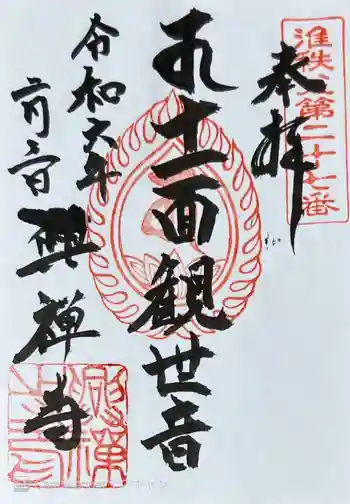 准秩父第二十七番
奉拝
十一面観世音
令和六年
興禅寺